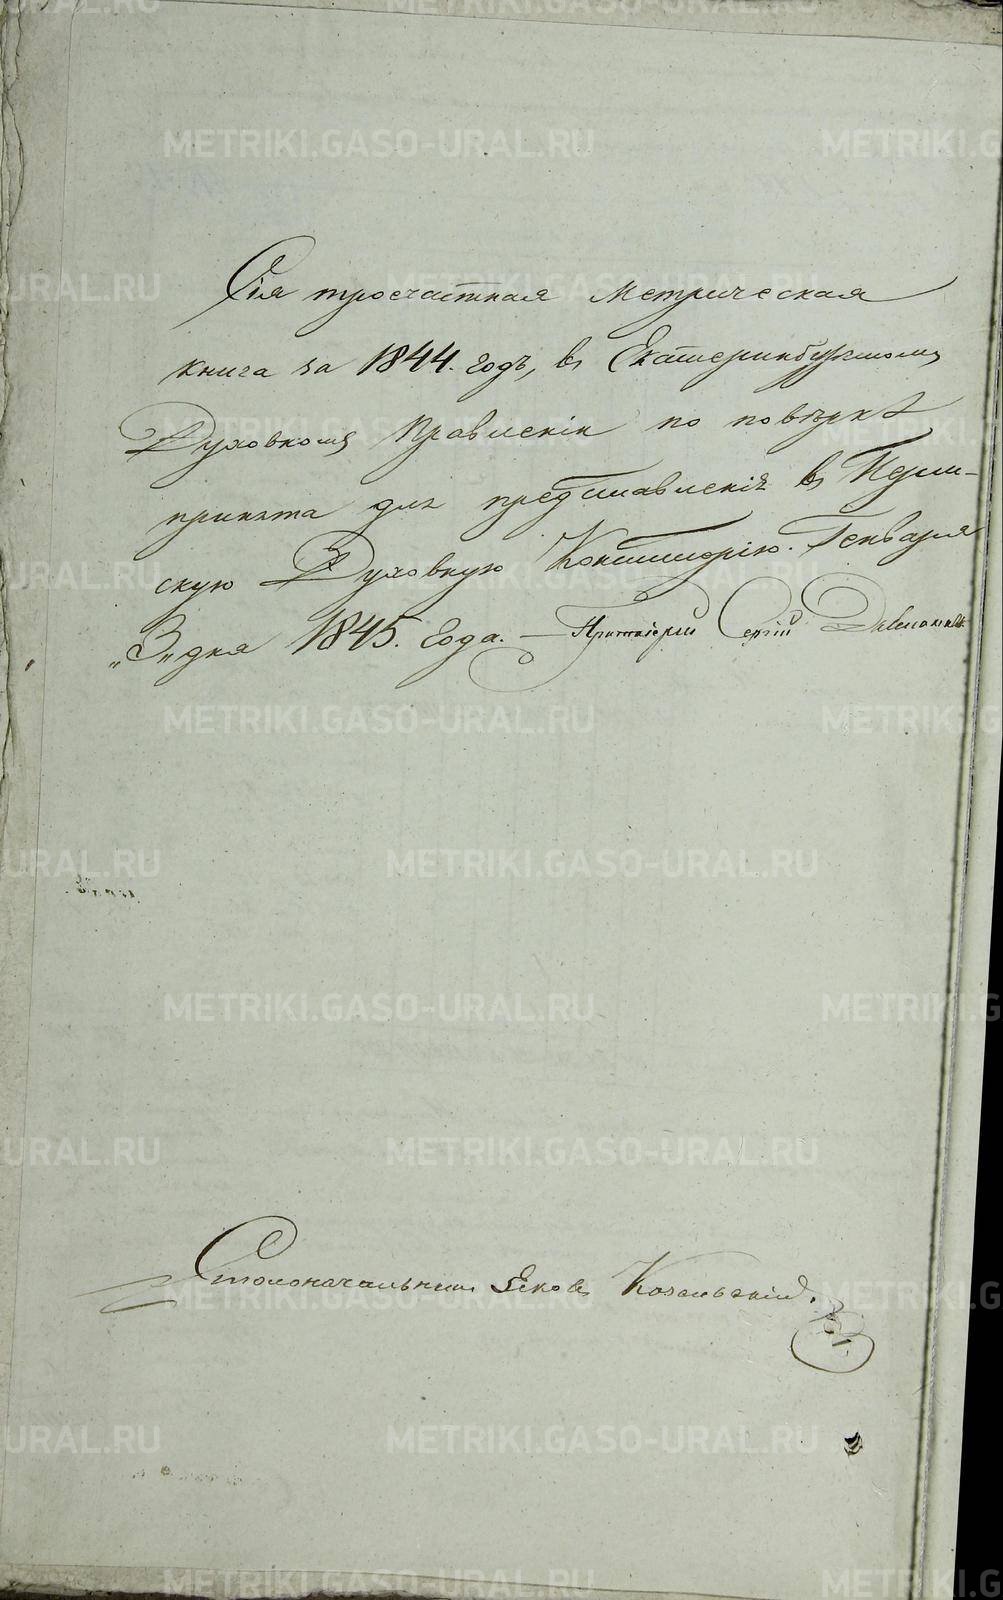 Сія троечастная Метрическая
книга за 1844. годъ, въ Екатеринбургскомъ
Духовномъ Правленіи по повѣркѣ
принята для представленія въ Перм-
скую Духовную Консисторію. Генваря
„3„ дня 1845. года. — Протоіерей Сергій
Столоначальникъ Яковъ Козельскій.
METRIKI.GASO-URAL.RU